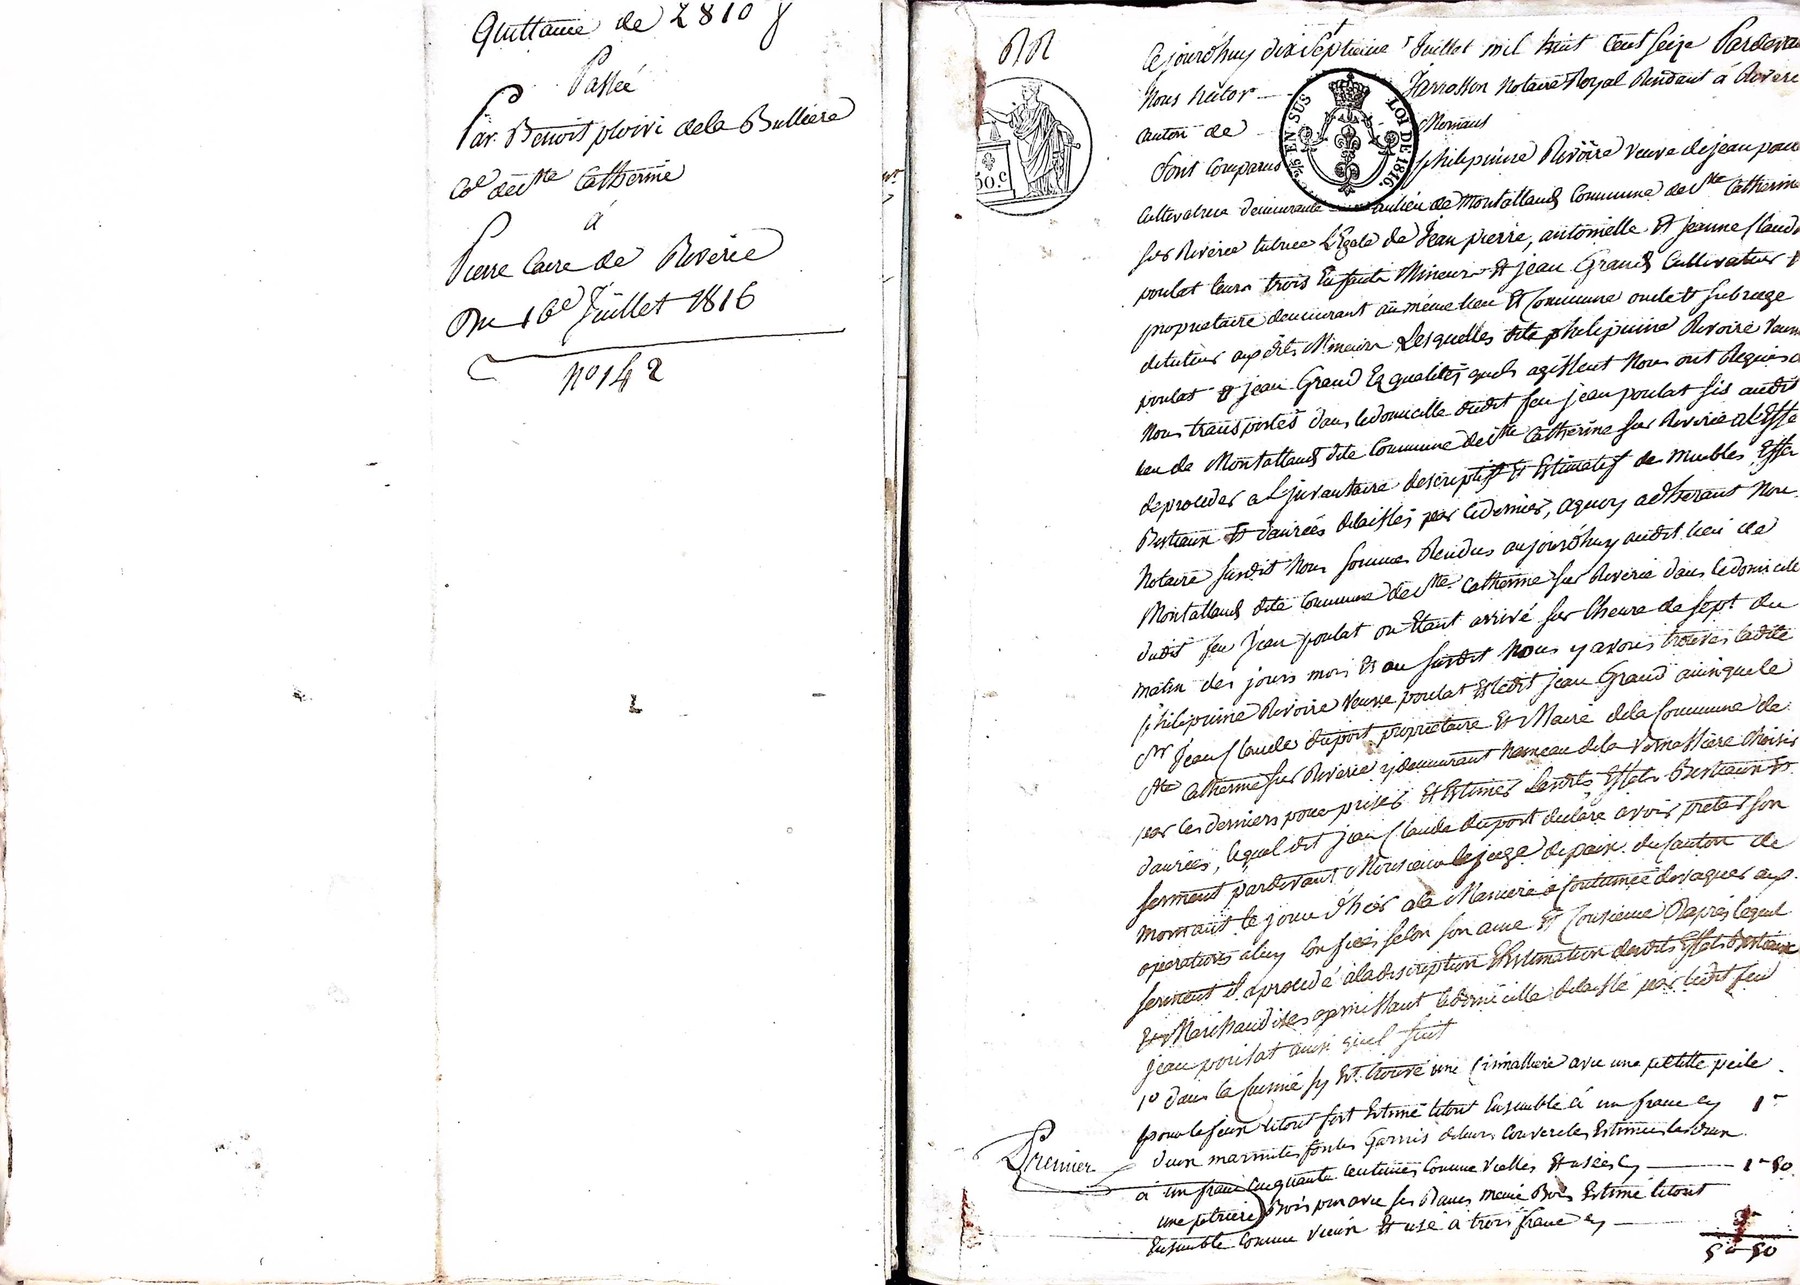 Quittance de 2810 f
Passée
Par Benoit ploivi dela Bulliere
Cne de Ste Catherine
à
Pierre Caire de Riverie
Du 16e Juillet 1816
No 142
Cejourd'huy dix Septieme Juillet mil huit Cent Seize Pardeva
Nous Notaire Royal Resident à Riveri
Canton de Mornant
Sont Comparus philipinne Rivoire veuve de jean poula
Cultivatrice demeurante au lieu de Montalland Commune de Ste Catherine
sur Riverie tutrice Légale de Jean pierre, antoinette et jeanne Claud
poulat leurs trois Enfants Mineurs et jean Grand Cultivateur
proprietaire demeurant au même lieu et Commune oncle et subroge
dituteur auxdits Mineurs Lesquelles dite philipinne Rivoire veuve
poulat et jean Grand Ez qualités quels agissent Nous ont Requis d
Nous transportés dans le domicille dudit feu jean poulat sis audit
lieu de Montalland dite Commune de Ste Catherine sur Riverie al'Effe
de proceder a L'juvantaire descriptif et Estimatif de meubles Effe
Bestiaux et danrées délaissés par Cedernier, aquoy adherant Nou
Notaire susdit Nous sommes Rendus aujourd'huy audit lieu de
Montalland dite Commune de Ste Catherine sur Riverie dans le domicile
dudit feu Jean poulat ou Etant arrivé sur L'heure de sept du
matin des jours mois et an susdit Nous y avons trouvés ladite
philipinne Rivoire veuve poulat et ledit jean Grand ainsi que le
Sr Jean Claude duport proprietaire et Maire de la Commune de
Ste Catherine sur Riverie y demeurant hameau de la Choisis
par ces derniers pour priser et Estimer lesdits Effets Bestiaux et
danrées, lequel dit jean Claude duport déclare avoir preter son
serment pardevant Monsieur le juge de paix du Canton de
mornant le jour d'hier a la Maniere a Coutumée de vaquer aux
operations a luy Confiées selon son ame et Consience D'après lequel
serment il a procedé a la description Estimation desdits Effets Bestiaux
Et Marchandises le domicille délaissé par ledit feu
jean poulat ainsi quil suit
1o dans la Cuisine sy Est trouvé une Crimalliere avec une petitte peile
pour le feux letout fort Estimé letout Ensemble à un franc cy 1 "
Premier
deux marmites fontes Garnis deleurs Couvercles Estimées les deux
à un franc Cinquante Centimes Comme vielles et usées cy 1 " 50
une petriere Bois pin avec ses Bancs même Bois Estimé letout
Ensemble Comme vieux et usé a trois francs cy 3 "
5 " 50
EN SUS
LOI DE 1816.
50.c